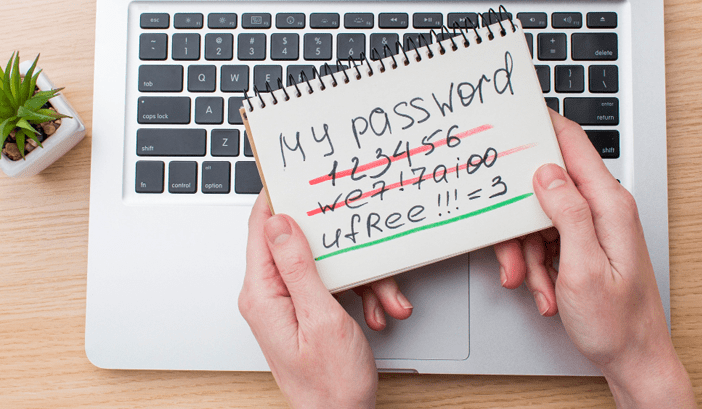 esc
! 1 @ 2 # 3 $ 4 % 5 ^ 6 + = delete
tab Q W E
caps lock A return
shift Z shift
fn control option
My password
123456
we7!7aioo
ufRee!!!=3